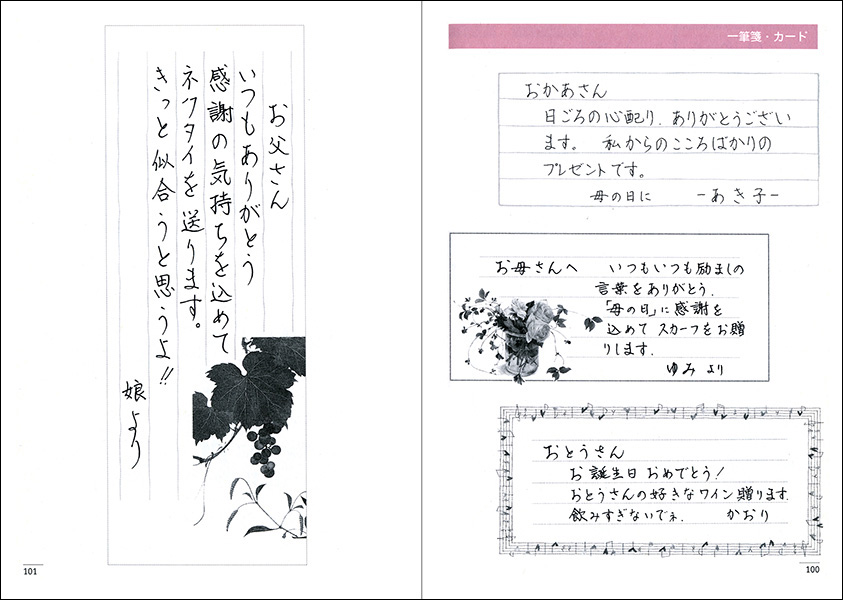 一筆箋・カード
おかあさん
日ごろの心配り、ありがとうござい
ます。 私からのこころばかりの
プレゼントです。
母の日に ーあき子ー
お母さんへ いつもいつも励ましの
言葉をありがとう。
「母の日」に感謝を
込めて スカーフをお贈
りします。
ゆみ より
おとうさん
お誕生日 おめでとう!
おとうさんの好きなワイン贈ります。
飲みすぎないでネ。 かおり
100
お父さん
いつもありがとう
感謝の気持ちを込めて
ネクタイを送ります。
きっと似合うと思うよ!!
娘より
101